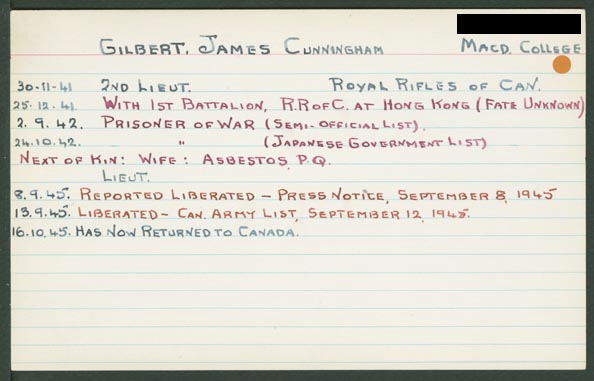 GILBERT, JAMES CUNNINGHAM MACD. COLLEGE
30-11-41 2ND LIEUT. ROYAL RIFLES OF CAN.
25.12.41. WITH 1ST BATTALION, R.R OF C. AT HONG KONG (FATE UNKNOWN)
2.9.42. PRISONER OF WAR (SEMI-OFFICIAL LIST).
24.10.42. " (JAPANESE GOVERNMENT LIST)
NEXT OF KIN: WIFE: ASBESTOS, P.Q.
LIEUT.
8.9.45. REPORTED LIBERATED – PRESS NOTICE, SEPTEMBER 8, 1945
13.9.45. LIBERATED – CAN. ARMY LIST, SEPTEMBER 12, 1945.
16.10.45. HAS NOW RETURNED TO CANADA.